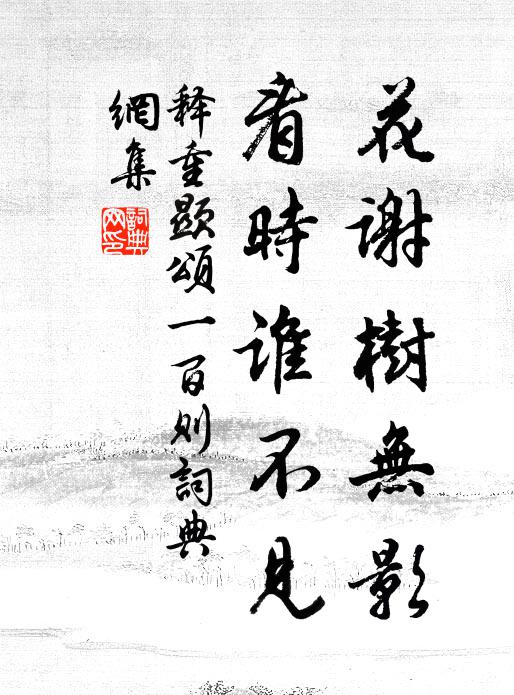 花謝樹無影
看時誰不見
释重顯頌一百則詞典
網集
詞典
网印